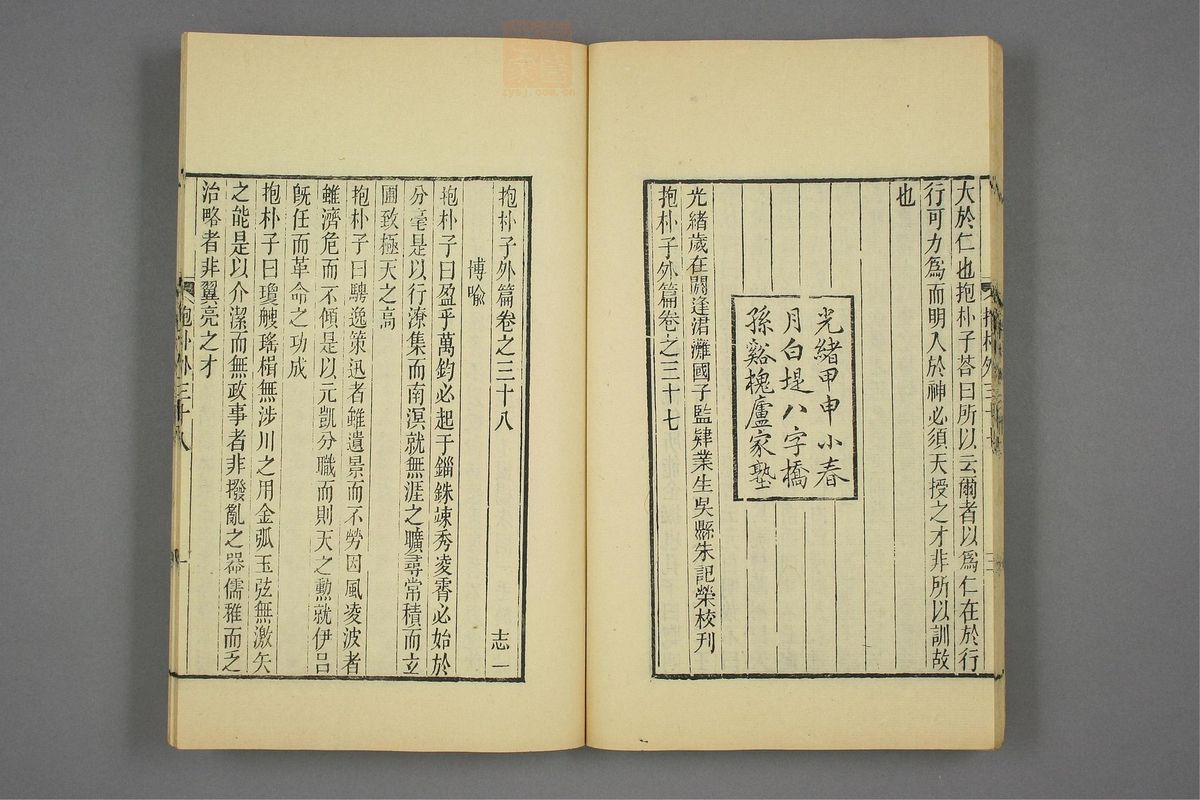 大於仁也抱朴子荅曰所以云爾者以爲仁在於行
行可力爲而明人於神必須天授之才非所以訓故
也
光緒甲申小春
月白堤八字橋
孫谿槐廬家塾
光緒歲在閼逢涒灘國子監肄業生吳縣朱記榮校刊
抱朴子外篇卷之三十七
抱朴子外篇卷之三十八
志一
博喩
抱朴子曰盈乎萬鈞必起于錙銖竦秀凌霄必始於
分毫是以行潦集而南溟就無涯之曠尋常積而立
圃致極天之高
抱朴子曰騁逸策迅者雖遺景而不勞因風凌波者
雖濟危而不傾是以元凱分職而則天之勲就伊呂
旣任而革命之功成
抱朴子曰瓊艘瑤楫無涉川之用金弧玉弦無激矢
之能是以介潔而無政事者非撥亂之器儒雅而乏
治略者非翼亮之才
抱朴外三十八
一
zysj.com.cn